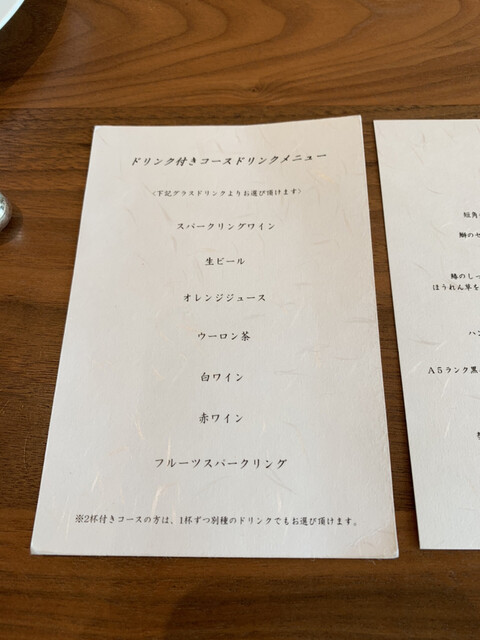 ドリンク付きコースドリンクメニュー
〈下記グラスドリンクよりお選び頂けます〉
スパークリングワイン
生ビール
オレンジジュース
ウーロン茶
白ワイン
赤ワイン
フルーツスパークリング
※2杯付きコースの方は、1杯ずつ別種のドリンクでもお選び頂けます。
短角
鰤のセ
鰆のしっ
ほうれん草を
ハン
A5ランク黒